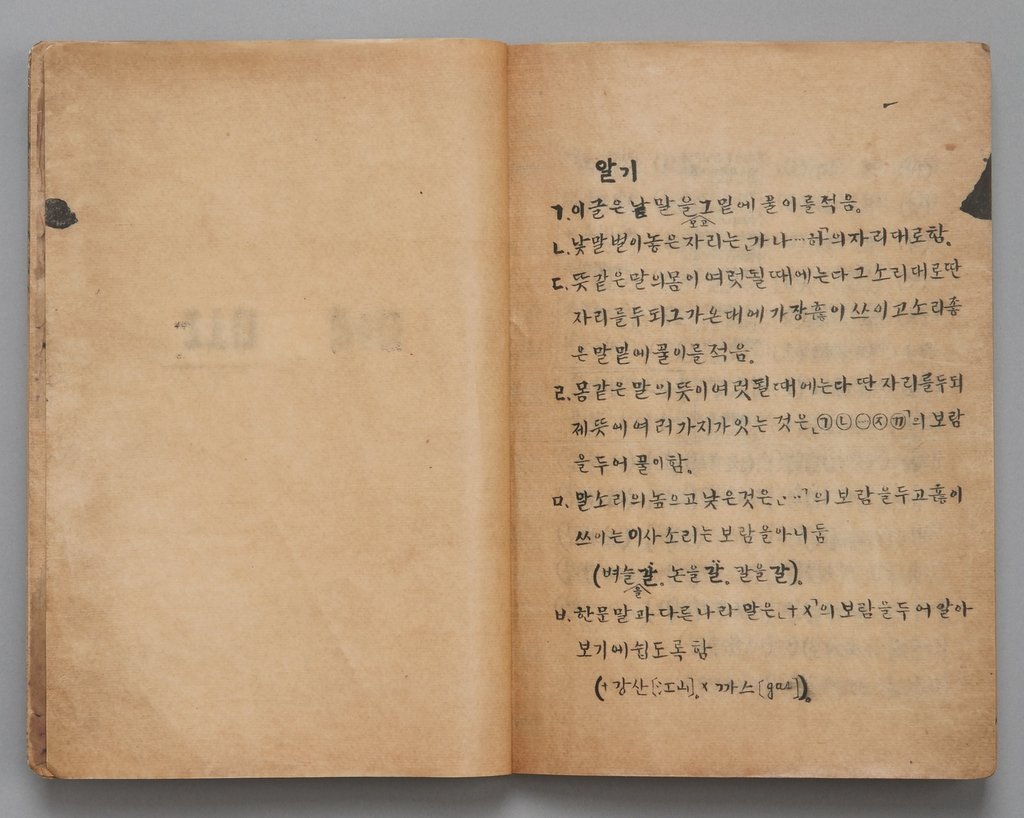 알기
ㄱ. 이글은 낱 말을 그 밑에 풀이를 적음。
모교
ㄴ. 낱말벌이놓은 자리는 「가 나…하」의 자리 대로함。
ㄷ. 뜻같은 말의 몸이 여럿될 때에는 다 그 소리대로 딴
자리를 두되 그 가온대에 가장 흖이 쓰이고 소리 좋
은 말 밑에 풀이를 적음。
ㄹ. 몸같은 말의 뜻이 여럿될 때에는 다 딴 자리를 두되
제 뜻에 여러 가지가 잇는 것은 「㉠㉡㋯㉨㉠」의 보람
을 두어 풀이함。
ㅁ. 말소리의 높으고 낮은 것은 「· ··」의 보람을 두고 흖이
쓰이는 이사소리는 보람을 아니 둠
(벼슬 갈。 논을 갈。 칼을 갈)。
을
ㅂ. 한문말과 다른 나라 말은 「+ ×」의 보람을 두어 알아
보기에 쉽도록 함
(+ 강산[江山]。 × 까스[gas])。